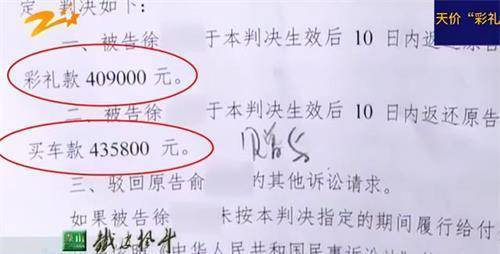 定，判决如下：
天价“彩礼
一、被告徐 于本判决生效后 10 日内返还原告
彩礼款 409000 元。
二、被告徐 于本判决生效后 10 日内返还原告
买车款 435800 元。
三、驳回原告俞 的其他诉讼请求。
如果被告徐 未按本判决指定的期间履行给付
《中华人民共和国民事诉讼法》